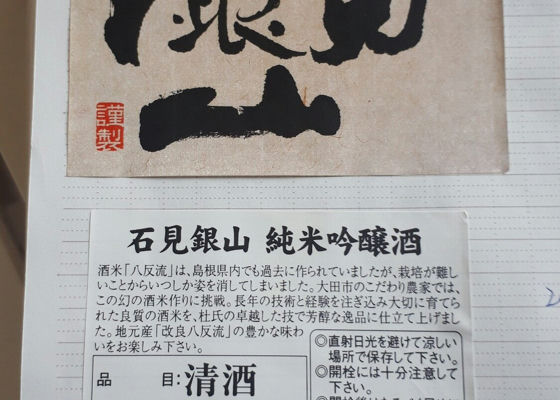 銀山
謹製
石見銀山 純米吟醸酒
酒米「八反流」は、島根県内でも過去に作られていましたが、栽培が難し
いことからいつしか姿を消してしまいました。大田市のこだわり農家では、
この幻の酒米作りに挑戦。長年の技術と経験を注ぎ込み大切に育てら
れた良質の酒米を、杜氏の卓越した技で芳醇な逸品に仕立て上げまし
た。地元産「改良八反流」の豊かな味わ
いをお楽しみ下さい。
品 目:清酒
◎直射日光を避けて涼しい
場所で保存して下さい。
◎開栓には十分注意して
下さい。